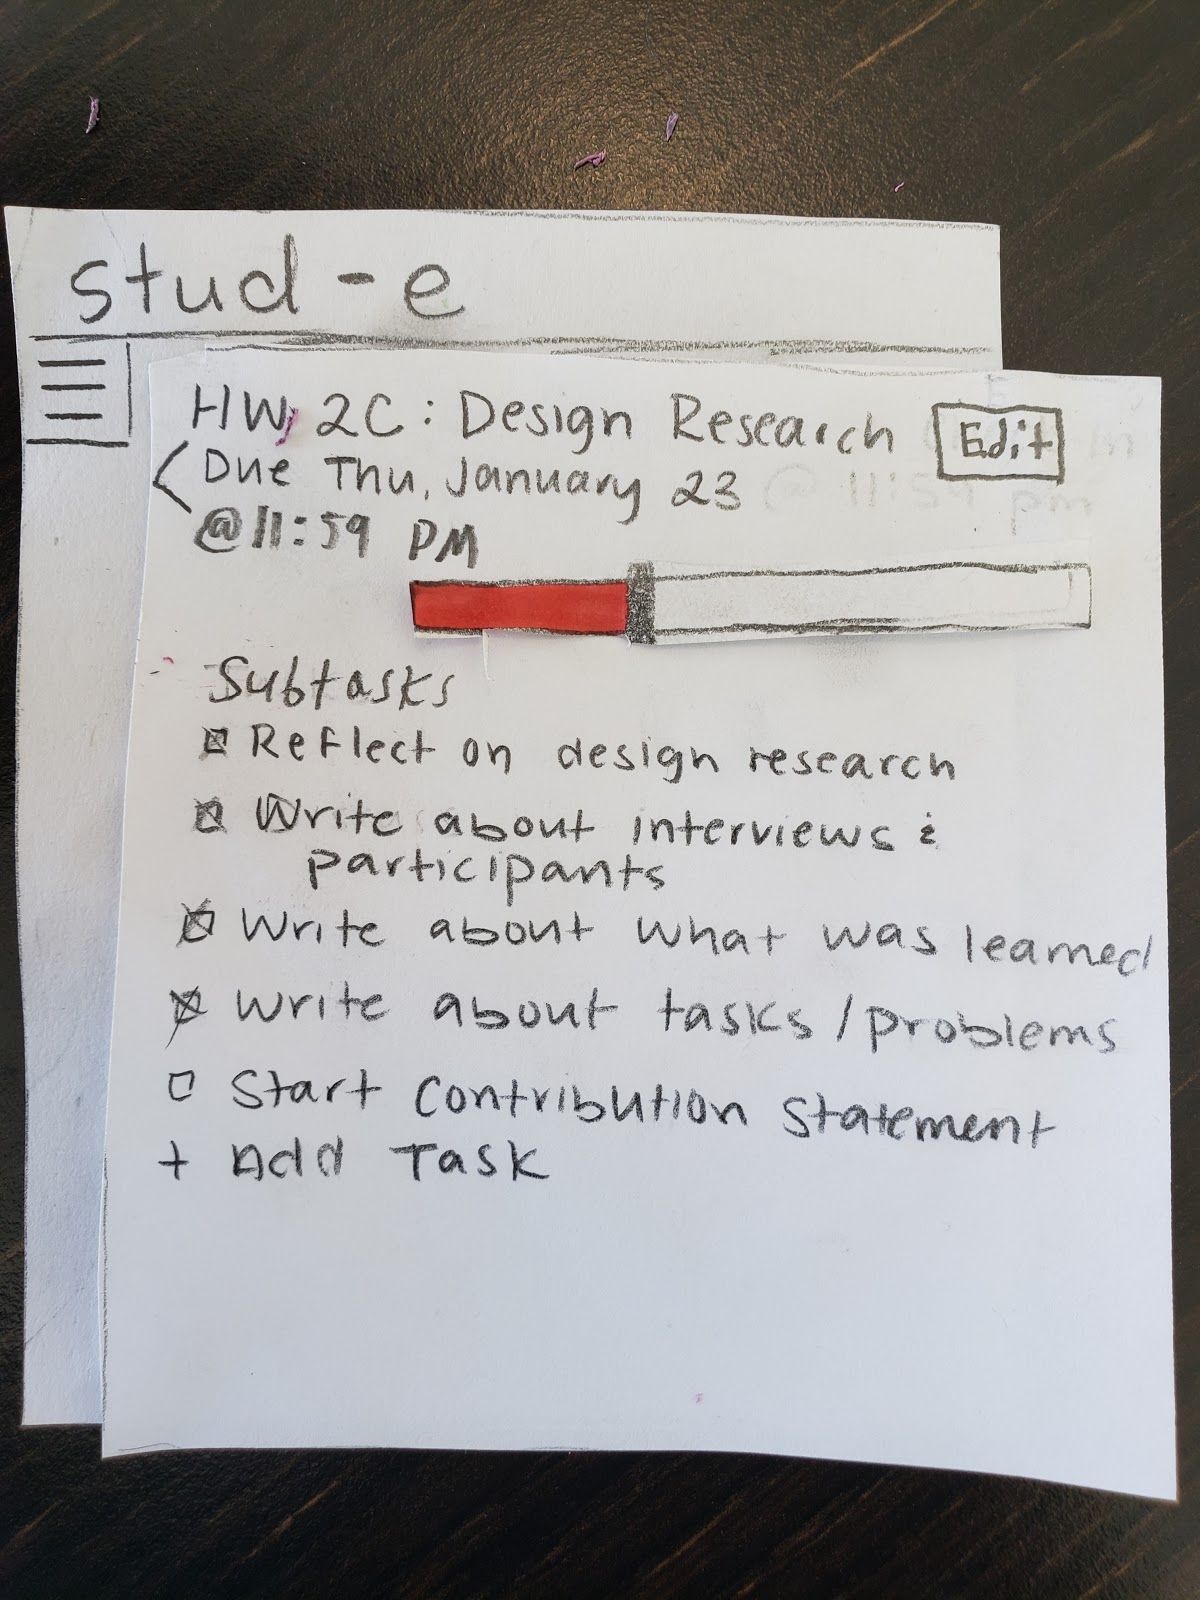 stud-e
HW 2C: Design Research
Edit
Due Thu, January 23
@ 11:59 pm
@11:59 PM
Subtasks
Reflect on design research
Write about interviews &
participants
Write about what was learned
write about tasks/problems
Start contribution statement
+ Add Task